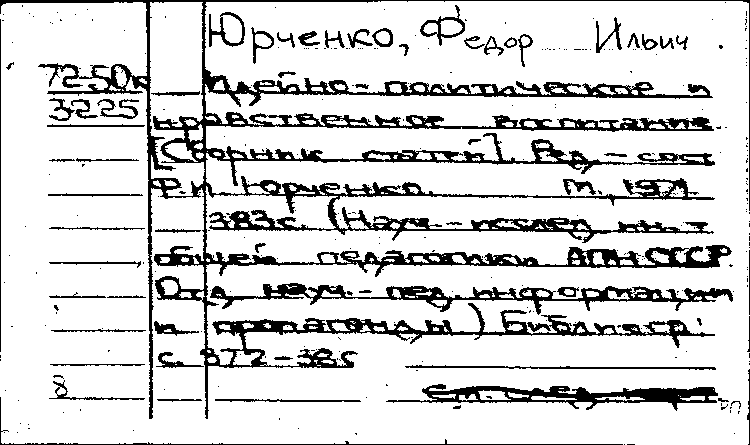 Юрченко, Федор Ильич.
72-50к Идейно-политическое и
3225 нравственное воспитание
[Сборник статей]. Ред.-сост.
Ф.И. Юрченко. М., 1971.
383с. (Науч.-исслед. ин-т
общей педагогики АПН СССР
Отд. науч.-пед. информации
и пропаганды) Библиогр:
с. 372-38
8 См. след. карт